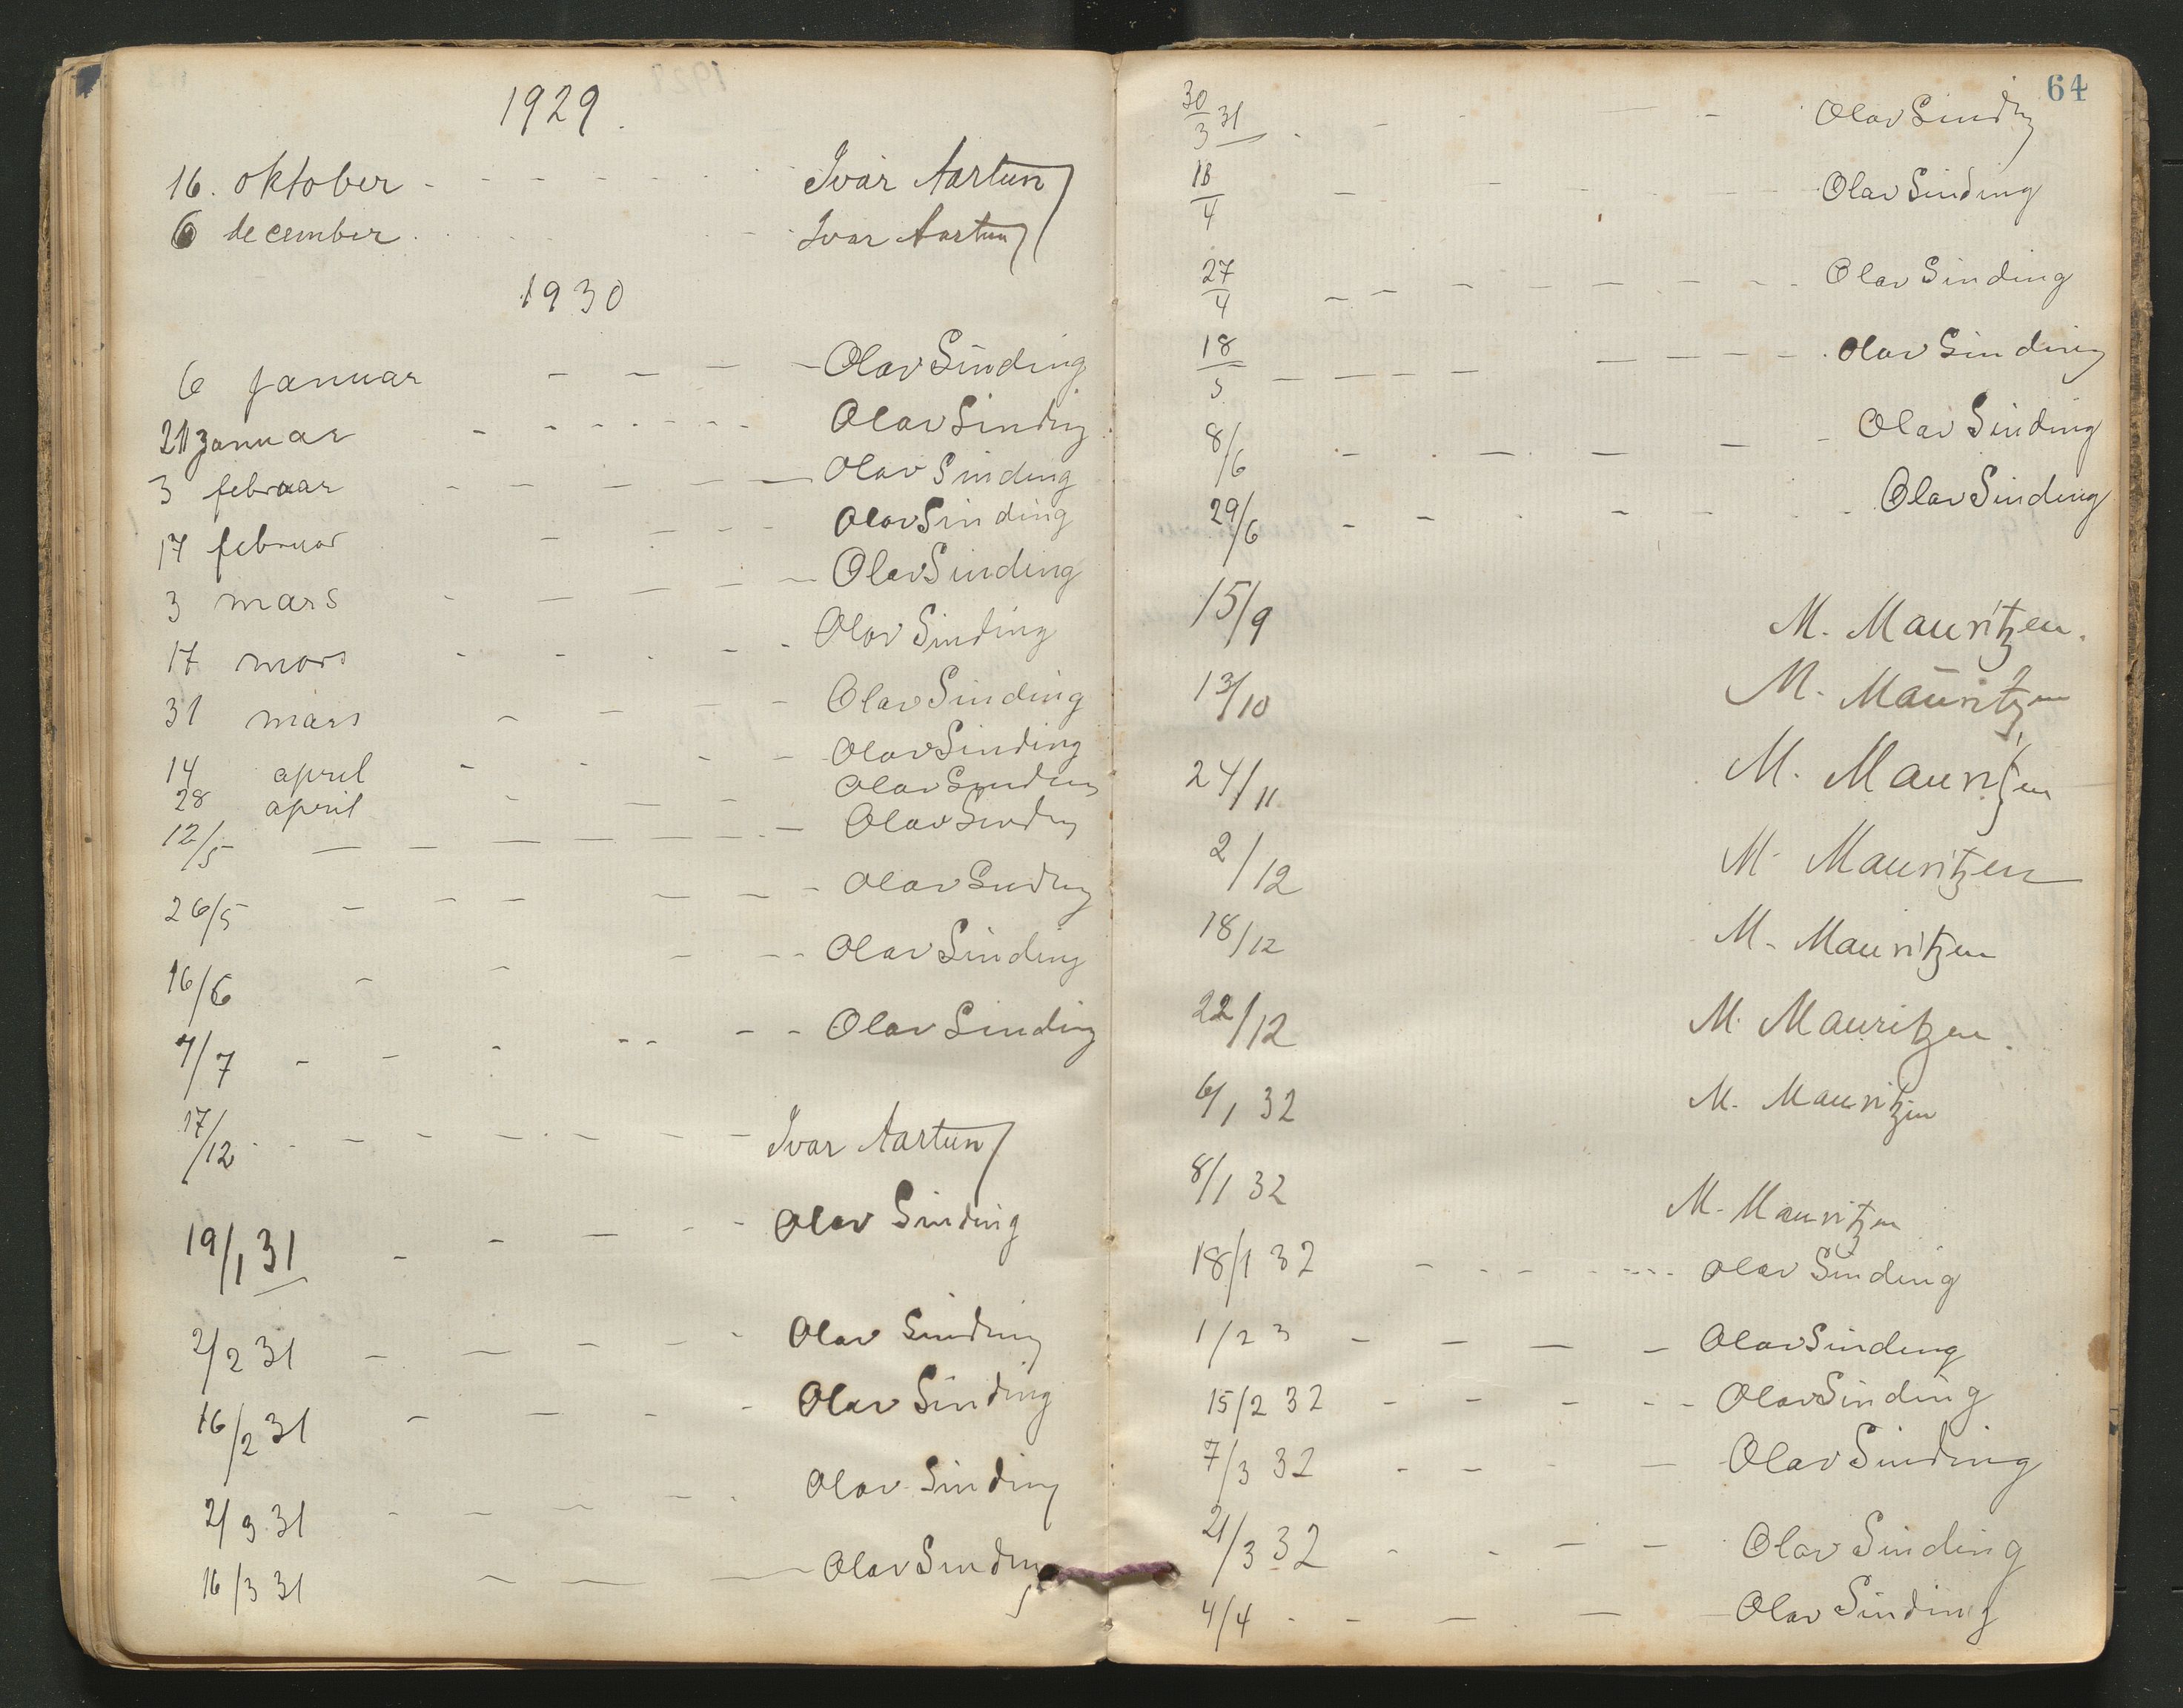 1929.
16. oktober - - - - - - Ivar Aartun
6 december - - - Ivar Aartun
1930
6 Januar - - - - Olav Sinding
21 Januar - - - - - - Olav Sinding
3 februar - - - - - Olav Sinding
17 februar - - - - Olav Sinding
3 mars - - - - - Olav Sinding
17 mars - - - - - Olav Sinding
31 mars - - - - - Olav Sinding
14 april - - - - Olav Sinding
28 april - - - Olav Sinding
12/5 - - - - - - - Olav Sinding
26/5 - - - - - - - Olav Sinding
16/6 - - - - - Olav Sinding
7/7 - - - - - - - Olav Sinding
17/12 - - - - - - - - - Ivar Aartun
19/1 31 - - - - - Olav Sinding
2/2 31 - - - - - Olav Sinding
16/2 31 - - - - Olav Sinding
2/3 31 - - - - - Olav Sinding
16/3 31 - - - Olav Sinding
64
30/3 31 - - - - Olav Sinding
18/4 - - - - Olav Sinding
27/4 - - - - - - - - Olav Sinding
18/5 - - - - - - - - Olav Sinding
8/6 - - - - - Olav Sinding
29/6 - - - - - - Olav Sinding
15/9 M. Mauritzen.
13/10 M. Mauritzen
24/11 M. Mauritzen
2/12 M. Mauritzen
18/12 M. Mauritzen
22/12 M. Mauritzen.
6/1 32 M. Mauritzen
8/1 32 M. Mauritzen
18/1 32 - - - - - - Olav Sinding
1/2 3 - - - - Olav Sinding
15/2 32 - - - - - Olav Sinding
7/3 32 - - - - Olav Sinding
21/3 32 - - - - Olav Sinding
4/4 - - - - - Olav Sinding